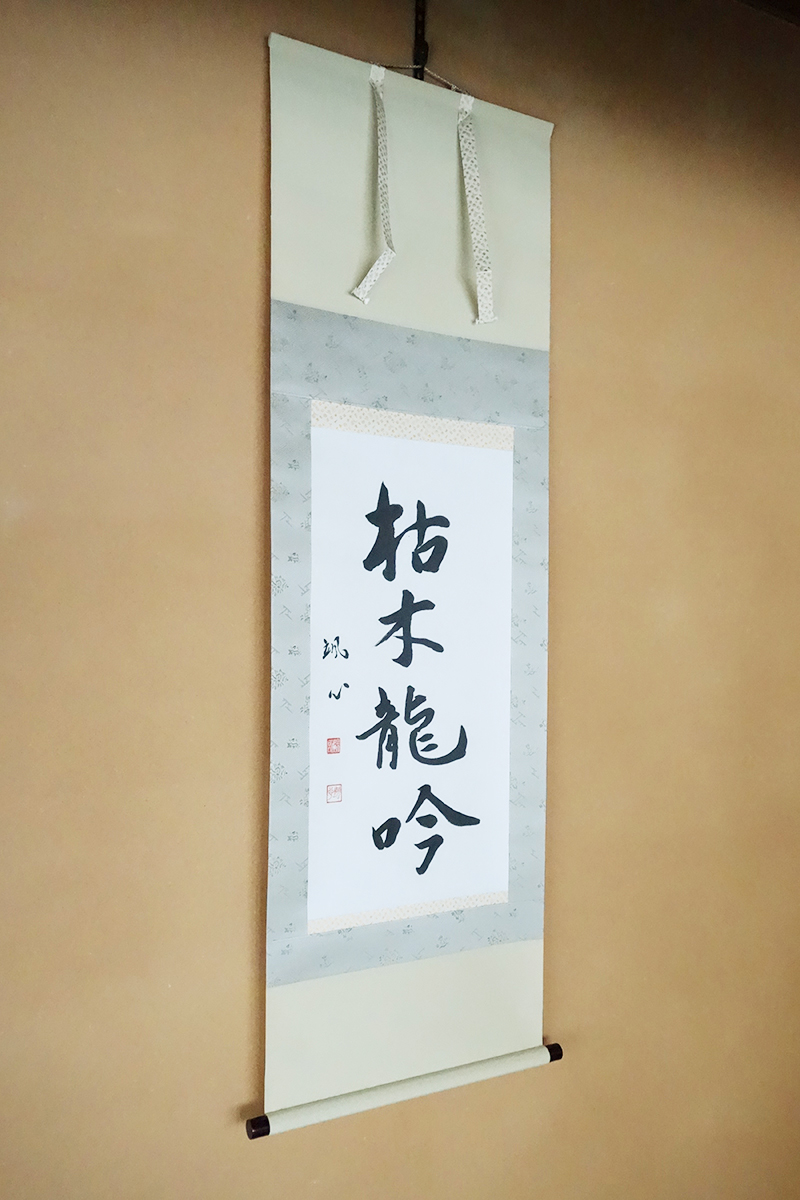 枯木龍吟
颯心